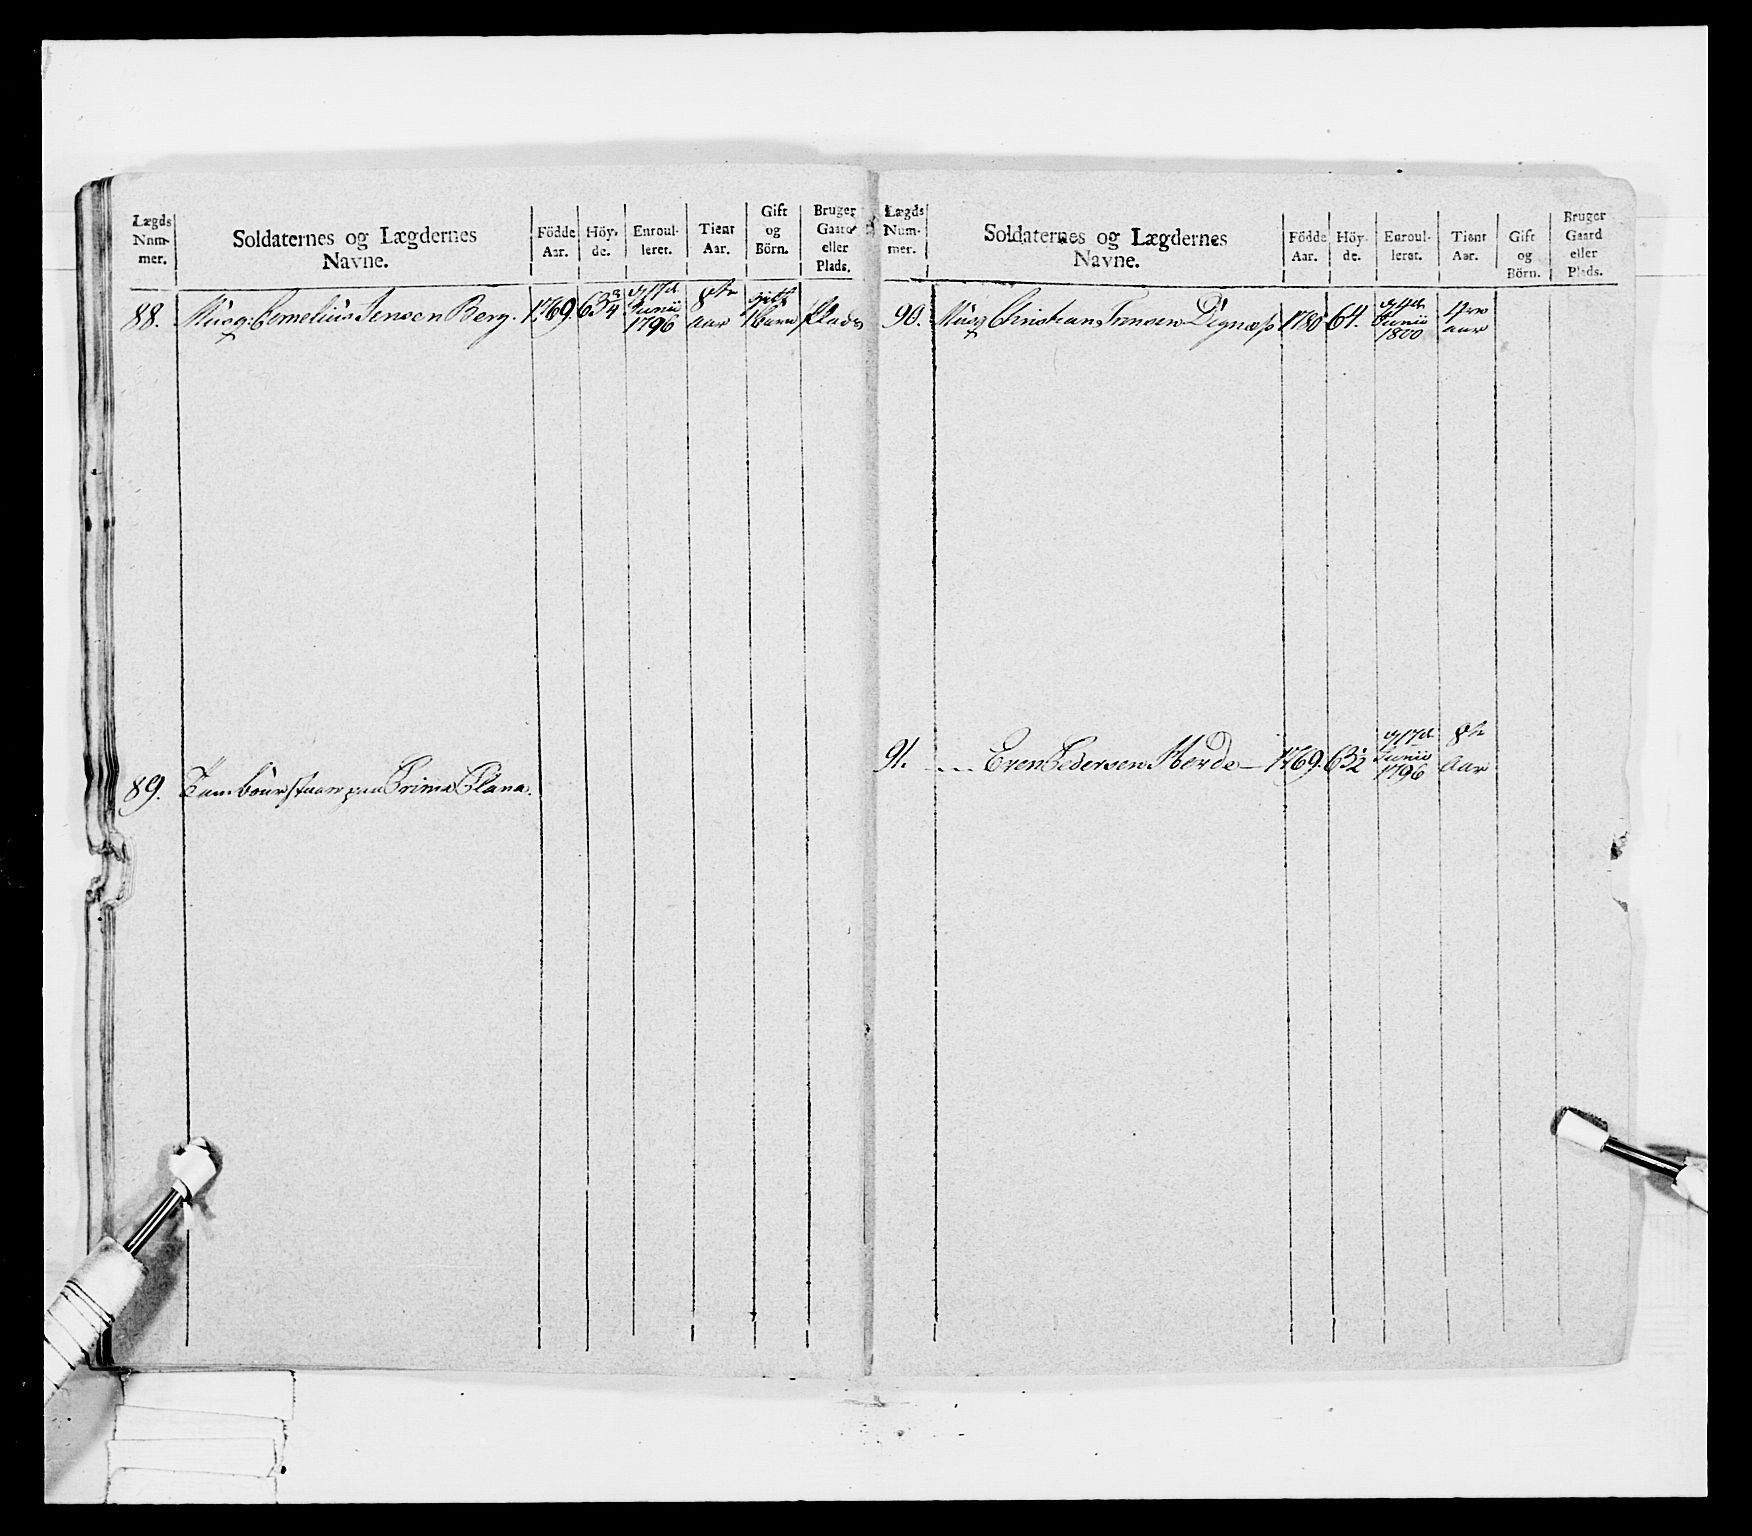 Lægds Num- mer. | Soldaternes og Lægdernes Navne. | Födde Aar. | Höy- de. | Enroul- leret. | Tient Aar. | Gift og Börn. | Bruger Gaard eller Plads.
88. Musq: Cornelius Jensen Berg. 1769. 63 3/4 d 17d Junii 1796 8te aar gift 1 barn Plads
89. Tambour staar paa Prima Plana.
Lægds Num- mer. | Soldaternes og Lægdernes Navne. | Födde Aar. | Höy- de. | Enroul- leret. | Tient Aar. | Gift og Börn. | Bruger Gaard eller Plads.
90. Musq Christian Jensen Dignæs 1780 64. Junii 1800 4re aar
91. — Even Pedersen Horde — 1769. 63 1/2 d 17d Junii 1796 8te Aar